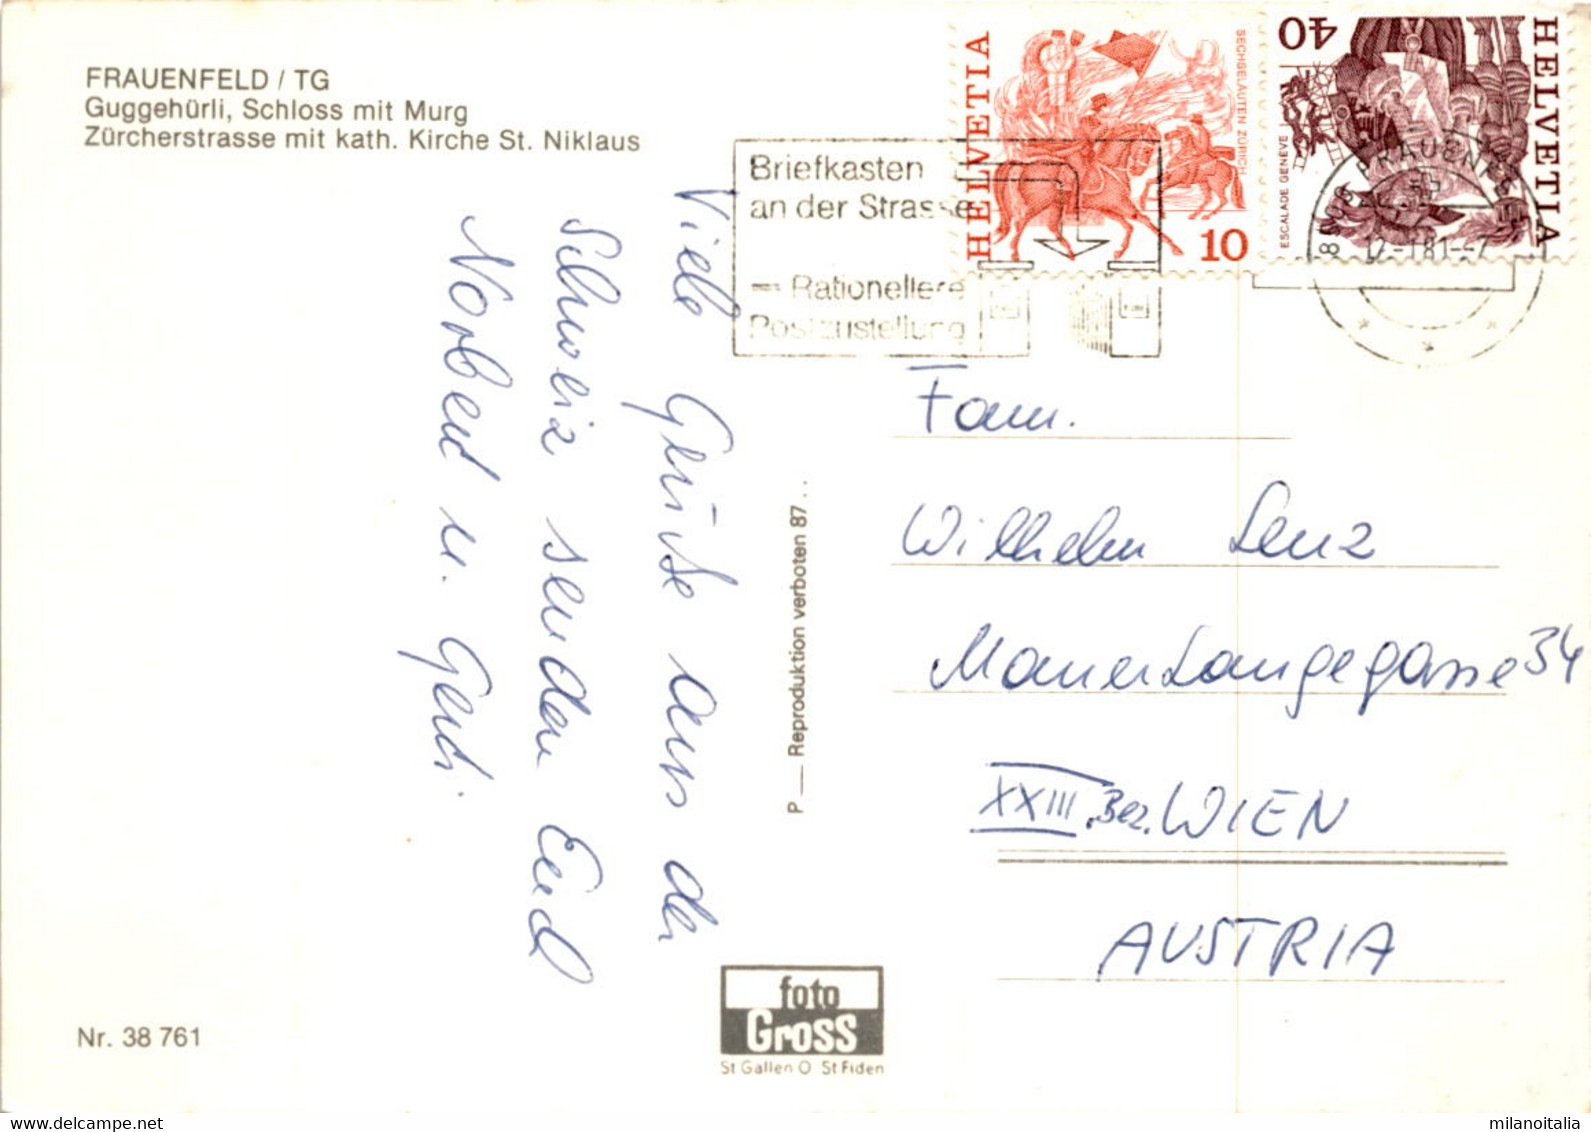 FRAUENFELD / TG
Guggehürli, Schloss mit Murg
Zürcherstrasse mit kath. Kirche St. Niklaus
Viele Grüße aus der
Schweiz senden Euch
Norbert u. Gerti.
Nr. 38 761
P — Reproduktion verboten 87 . .
foto
Gross
St Gallen O St Fiden
Briefkasten
an der Strasse
— Rationellere
Postzustellung
HELVETIA
SECHSELÄUTEN ZÜRICH
10
40
HELVETIA
ESCALADE GENÈVE
Fam.
Wilhelm Lenz
Maurer Langegasse 34
XXIII. Bez. WIEN
AUSTRIA
www.delcampe.net
milanoitalia